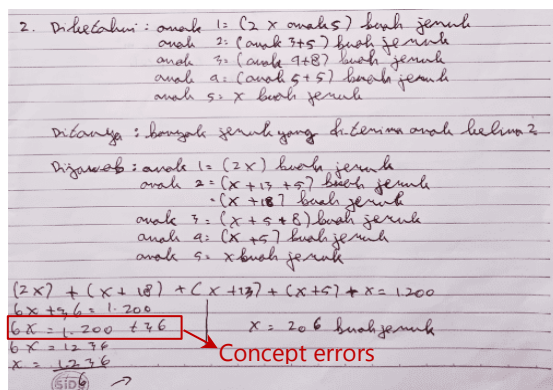 2. Diketahui : anak 1 = (2 x anak 5) buah jeruk
anak 2 = (anak 3+5) buah jeruk
anak 3 = (anak 4+8) buah jeruk
anak 4 = (anak 5+5) buah jeruk
anak 5 = x buah jeruk
Ditanya : banyak jeruk yang diterima anak kelima?
Dijawab : anak 1 = (2x) buah jeruk
anak 2 = (x + 13 + 5) buah jeruk
= (x + 18) buah jeruk
anak 3 = (x + 5 + 8) buah jeruk
anak 4 = (x + 5) buah jeruk
anak 5 = x buah jeruk
(2x) + (x + 18) + (x + 13) + (x + 5) + x = 1.200
6x + 36 = 1.200
6x = 1.200 + 36 x = 206 buah jeruk
6x = 1236
Concept errors
x = 1236
6